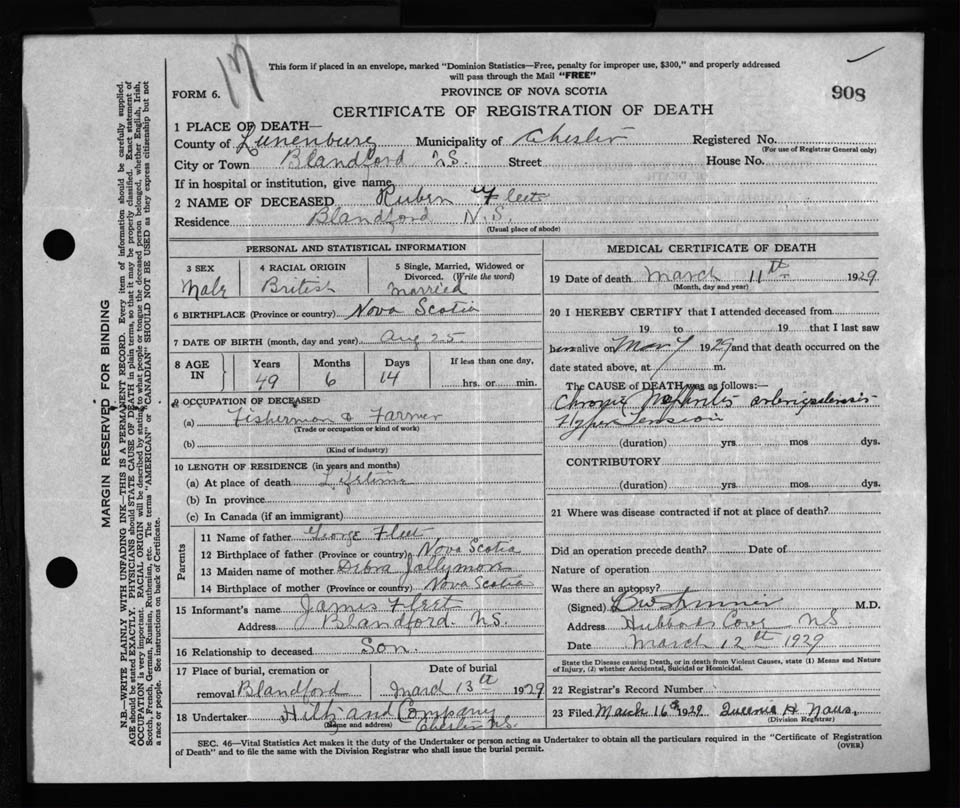 17
This form if placed in an envelope, marked "Dominion Statistics—Free, penalty for improper use, $300," and properly addressed
will pass through the Mail "FREE"
FORM 6.
PROVINCE OF NOVA SCOTIA
908
CERTIFICATE OF REGISTRATION OF DEATH
1 PLACE OF DEATH—
County of Lunenburg Municipality of Chester Registered No.
(For use of Registrar General only)
City or Town Blandford N.S. Street House No.
If in hospital or institution, give name
2 NAME OF DECEASED Ruben Fleet
Residence Blandford N.S.
(Usual place of abode)
PERSONAL AND STATISTICAL INFORMATION
3 SEX Male
4 RACIAL ORIGIN British
5 Single, Married, Widowed or
Divorced. (Write the word)
married
6 BIRTHPLACE (Province or country) Nova Scotia
7 DATE OF BIRTH (month, day and year) Aug 25
8 AGE IN
Years Months Days If less than one day,
49 6 14 hrs. or min.
9 OCCUPATION OF DECEASED
(a) Fisherman & Farmer
(Trade or occupation or kind of work)
(b)
(Kind of industry)
10 LENGTH OF RESIDENCE (in years and months)
(a) At place of death Lifetime
(b) In province
(c) In Canada (if an immigrant)
Parents
11 Name of father George Fleet
12 Birthplace of father (Province or country) Nova Scotia
13 Maiden name of mother Debra Jollymore
14 Birthplace of mother (Province or country) Nova Scotia
15 Informant's name James Fleet
Address Blandford. N.S.
16 Relationship to deceased Son.
17 Place of burial, cremation or Date of burial
removal Blandford March 13th 1929
18 Undertaker Hiltz and Company
(Name and address) Chester N.S.
MEDICAL CERTIFICATE OF DEATH
19 Date of death March 11th 1929
(Month, day and year)
20 I HEREBY CERTIFY that I attended deceased from
19 to 19 that I last saw
him alive on Mar 7 1929 and that death occurred on the
date stated above, at m.
The CAUSE of DEATH was as follows:—
Chronic Nephritis arteriosclerosis
Hyper Tension
(duration) yrs. mos dys.
CONTRIBUTORY
(duration) yrs. mos. dys.
21 Where was disease contracted if not at place of death?
Did an operation precede death? Date of
Nature of operation
Was there an autopsy?
(Signed) M.D.
Address Hubbards Cove NS
Date March 12th 1929
State the Disease causing Death, or in death from Violent Causes, state (1) Means and Nature
of Injury, (2) whether Accidental, Suicidal or Homicidal.
22 Registrar's Record Number
23 Filed March 16th 1929 H Naus.
(Division Registrar)
SEC. 46—Vital Statistics Act makes it the duty of the Undertaker or person acting as Undertaker to obtain all the particulars required in the "Certificate of Registration
of Death" and to file the same with the Division Registrar who shall issue the burial permit.
(OVER)
MARGIN RESERVED FOR BINDING
N.B.—WRITE PLAINLY WITH UNFADING INK—THIS IS A PERMANENT RECORD. Every item of information should be carefully supplied.
AGE should be stated EXACTLY. PHYSICIANS should STATE CAUSE OF DEATH in plain terms, so that it may be properly classified. Exact statement of
OCCUPATION is very important. RACIAL ORIGIN will be described by stating to what people or tongue the deceased person belonged, whether English, Irish,
Scotch, French, German, Russian, Ruthenian, etc. The terms "AMERICAN" or "CANADIAN" SHOULD NOT BE USED as they express citizenship but not
a race or people. See instructions on back of Certificate.